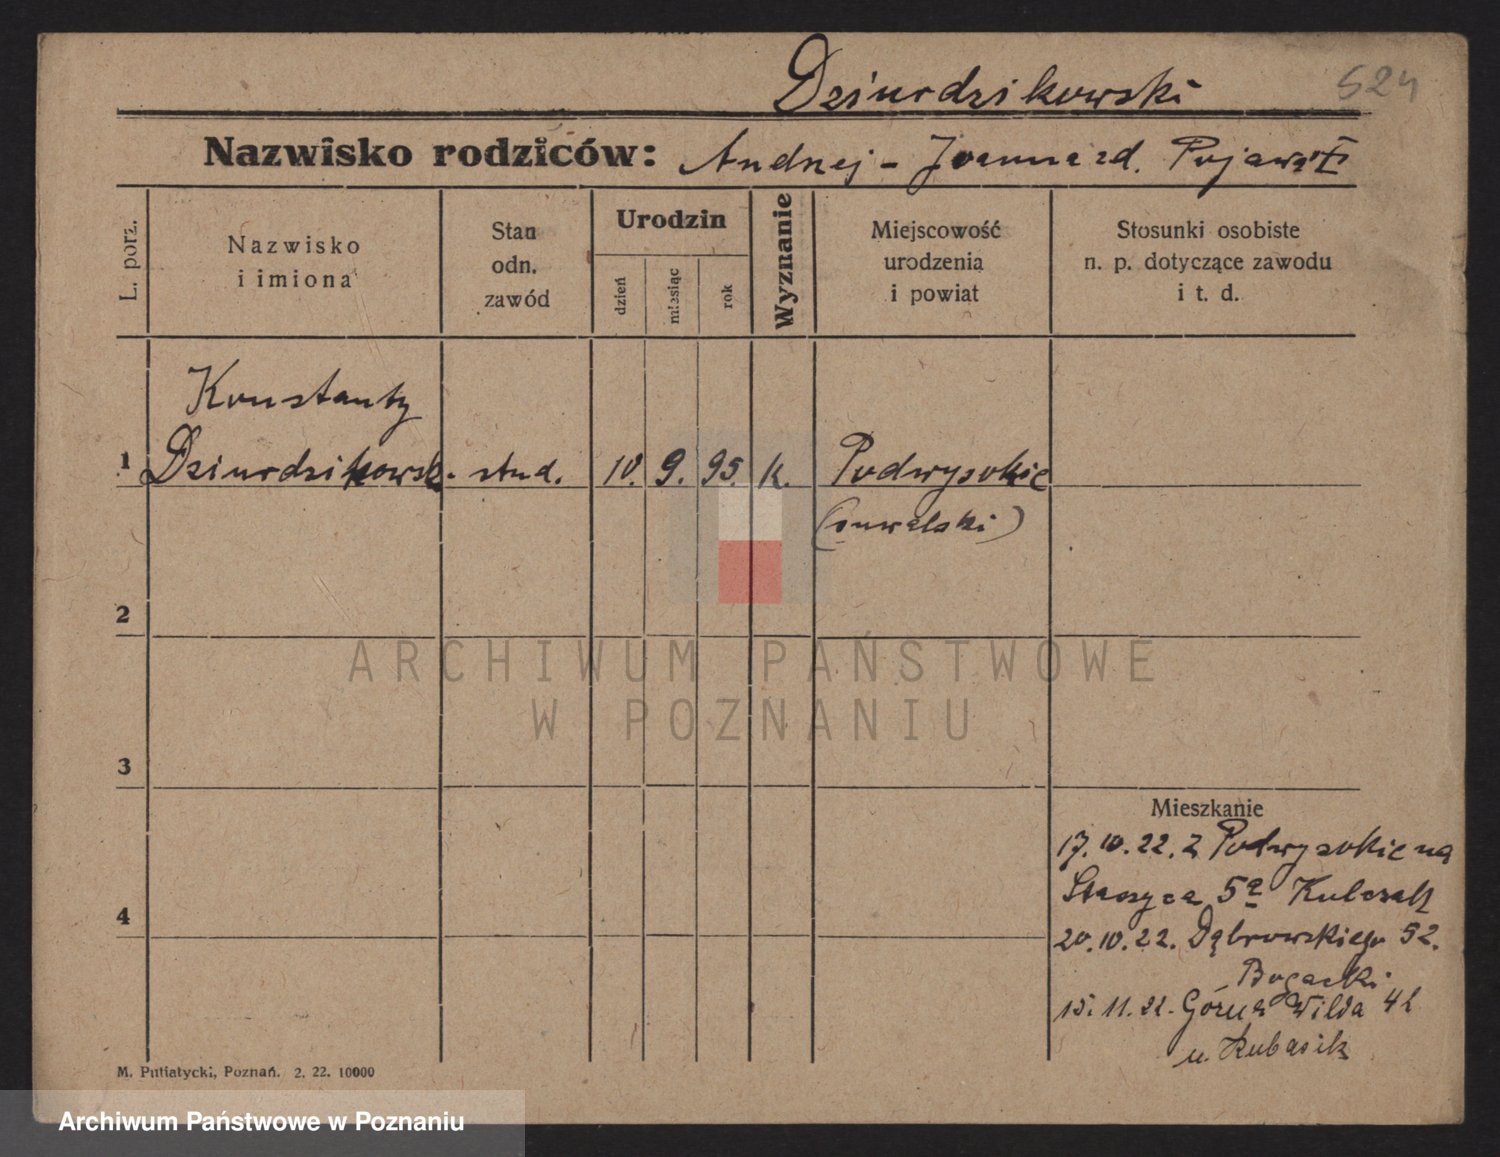 Dziurdzikowski 524
Nazwisko rodziców: Andrzej - Joanna zd.
L. porz.
Nazwisko
i imiona
Stan
odn.
zawód
Urodzin
dzień
miesiąc
rok
Wyznanie
Miejscowość
urodzenia
i powiat
Stosunki osobiste
n. p. dotyczące zawodu
i t. d.
Konstanty
1 Dziurdzikowski stud. 10. 9. 95. k. Podwysokie
(suwalski)
2
3
4
Mieszkanie
17.10.22. z Podwysokie na
Staszyca 5a Kulczak
20.10.22. Dąbrowskiego 52.
Bogacki
15.11.22. Górna Wilda
u. Kubasik
M. Putiatycki, Poznań. 2. 22. 10000
ARCHIWUM PAŃSTWOWE
W POZNANIU
Archiwum Państwowe w Poznaniu